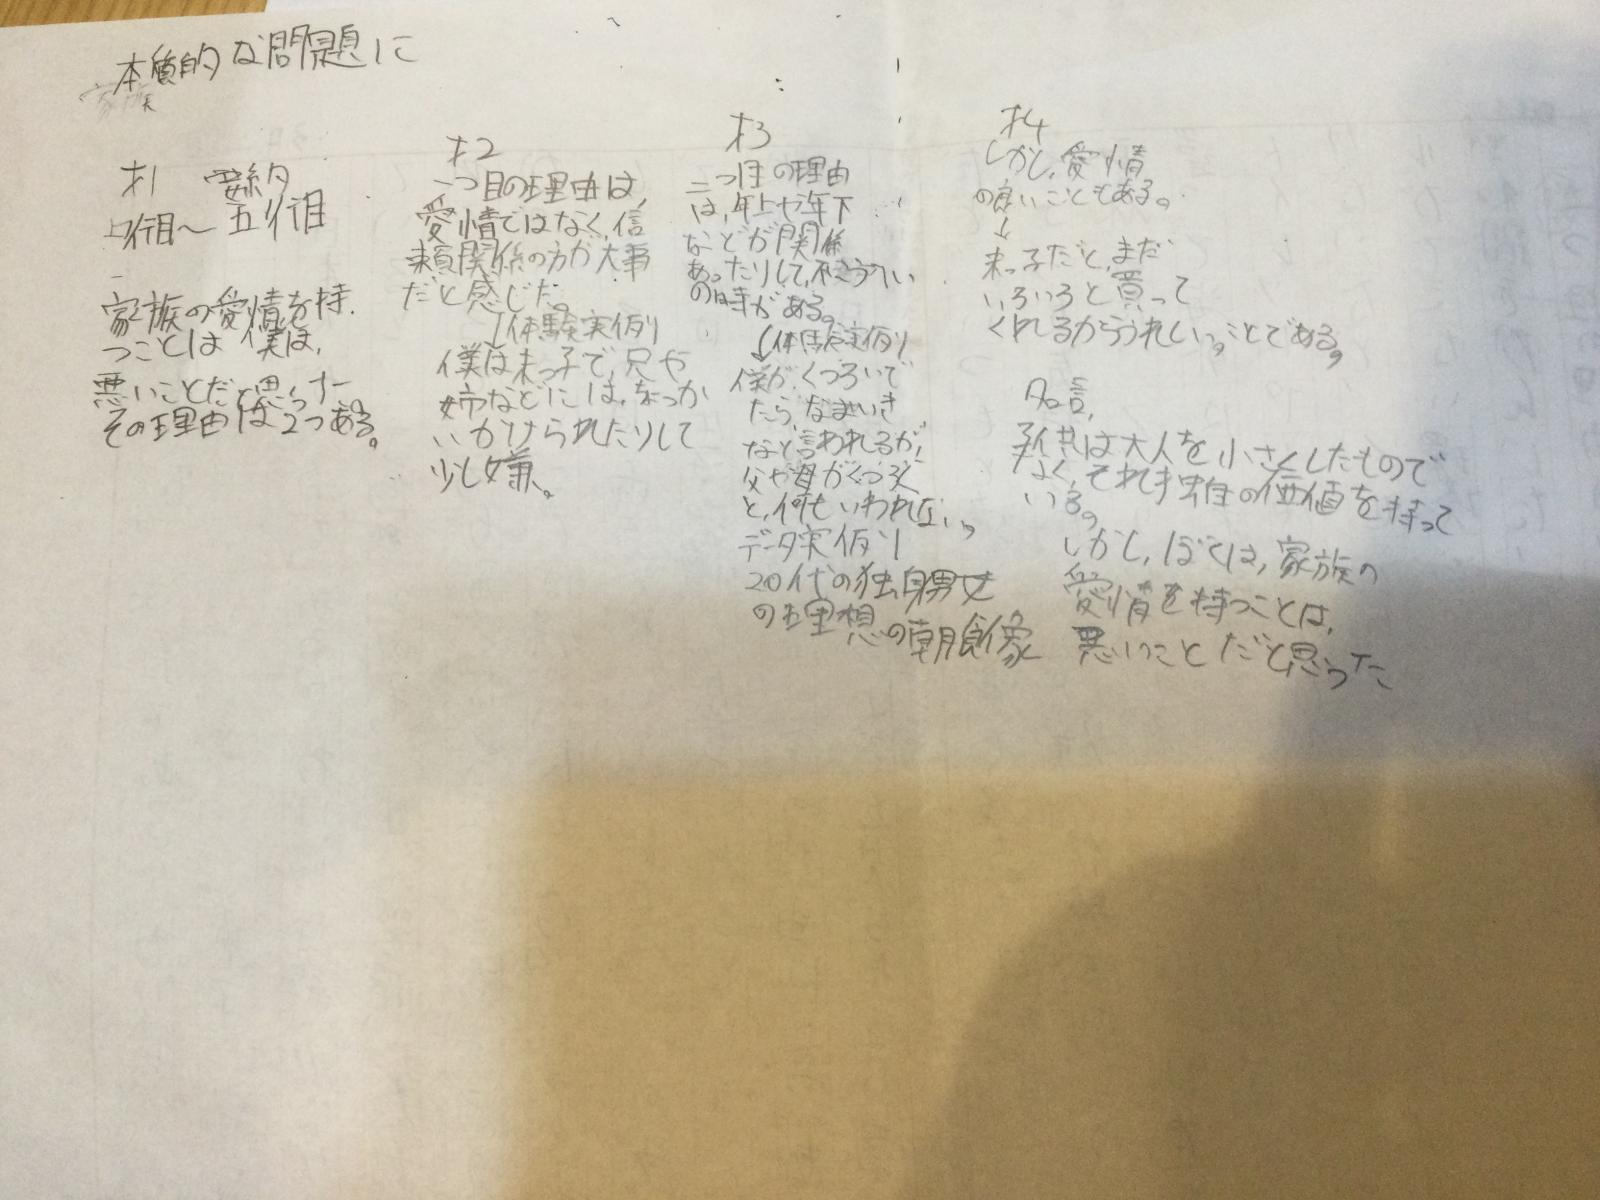 本質的な問題に
家族
才1 要約
五行目
家族の愛情を持
つことは 僕は、
悪いことだと思った。
その理由は2つある。
才2
一つ目の理由は、
愛情ではなく、信
頼関係の方が大事
だと感じた。
↓体験実例
僕は末っ子で、兄や
姉などには、ちょっか
いかけられたりして
少し嫌。
才3
二つ目の理由
は、年上や年下
などが関係
あったりして、
の時がある。
↓体験実例
僕が、くつろいで
たら、なまいき
など言われるが、
父や母がくつろぐ
と、何もいわれない。
データ実例
20代の独身男女
の理想の朝飯像
才4
しかし、愛情
の良いこともある。
↓
末っ子だと、まだ
いろいろと買って
くれるからうれしい。ことである。
名言、
子供は大人を小さくしたもので
なく、それ独の価値を持って
いる。
しかし、ぼくは、家族の
愛情を持つことは、
悪いことだと思った